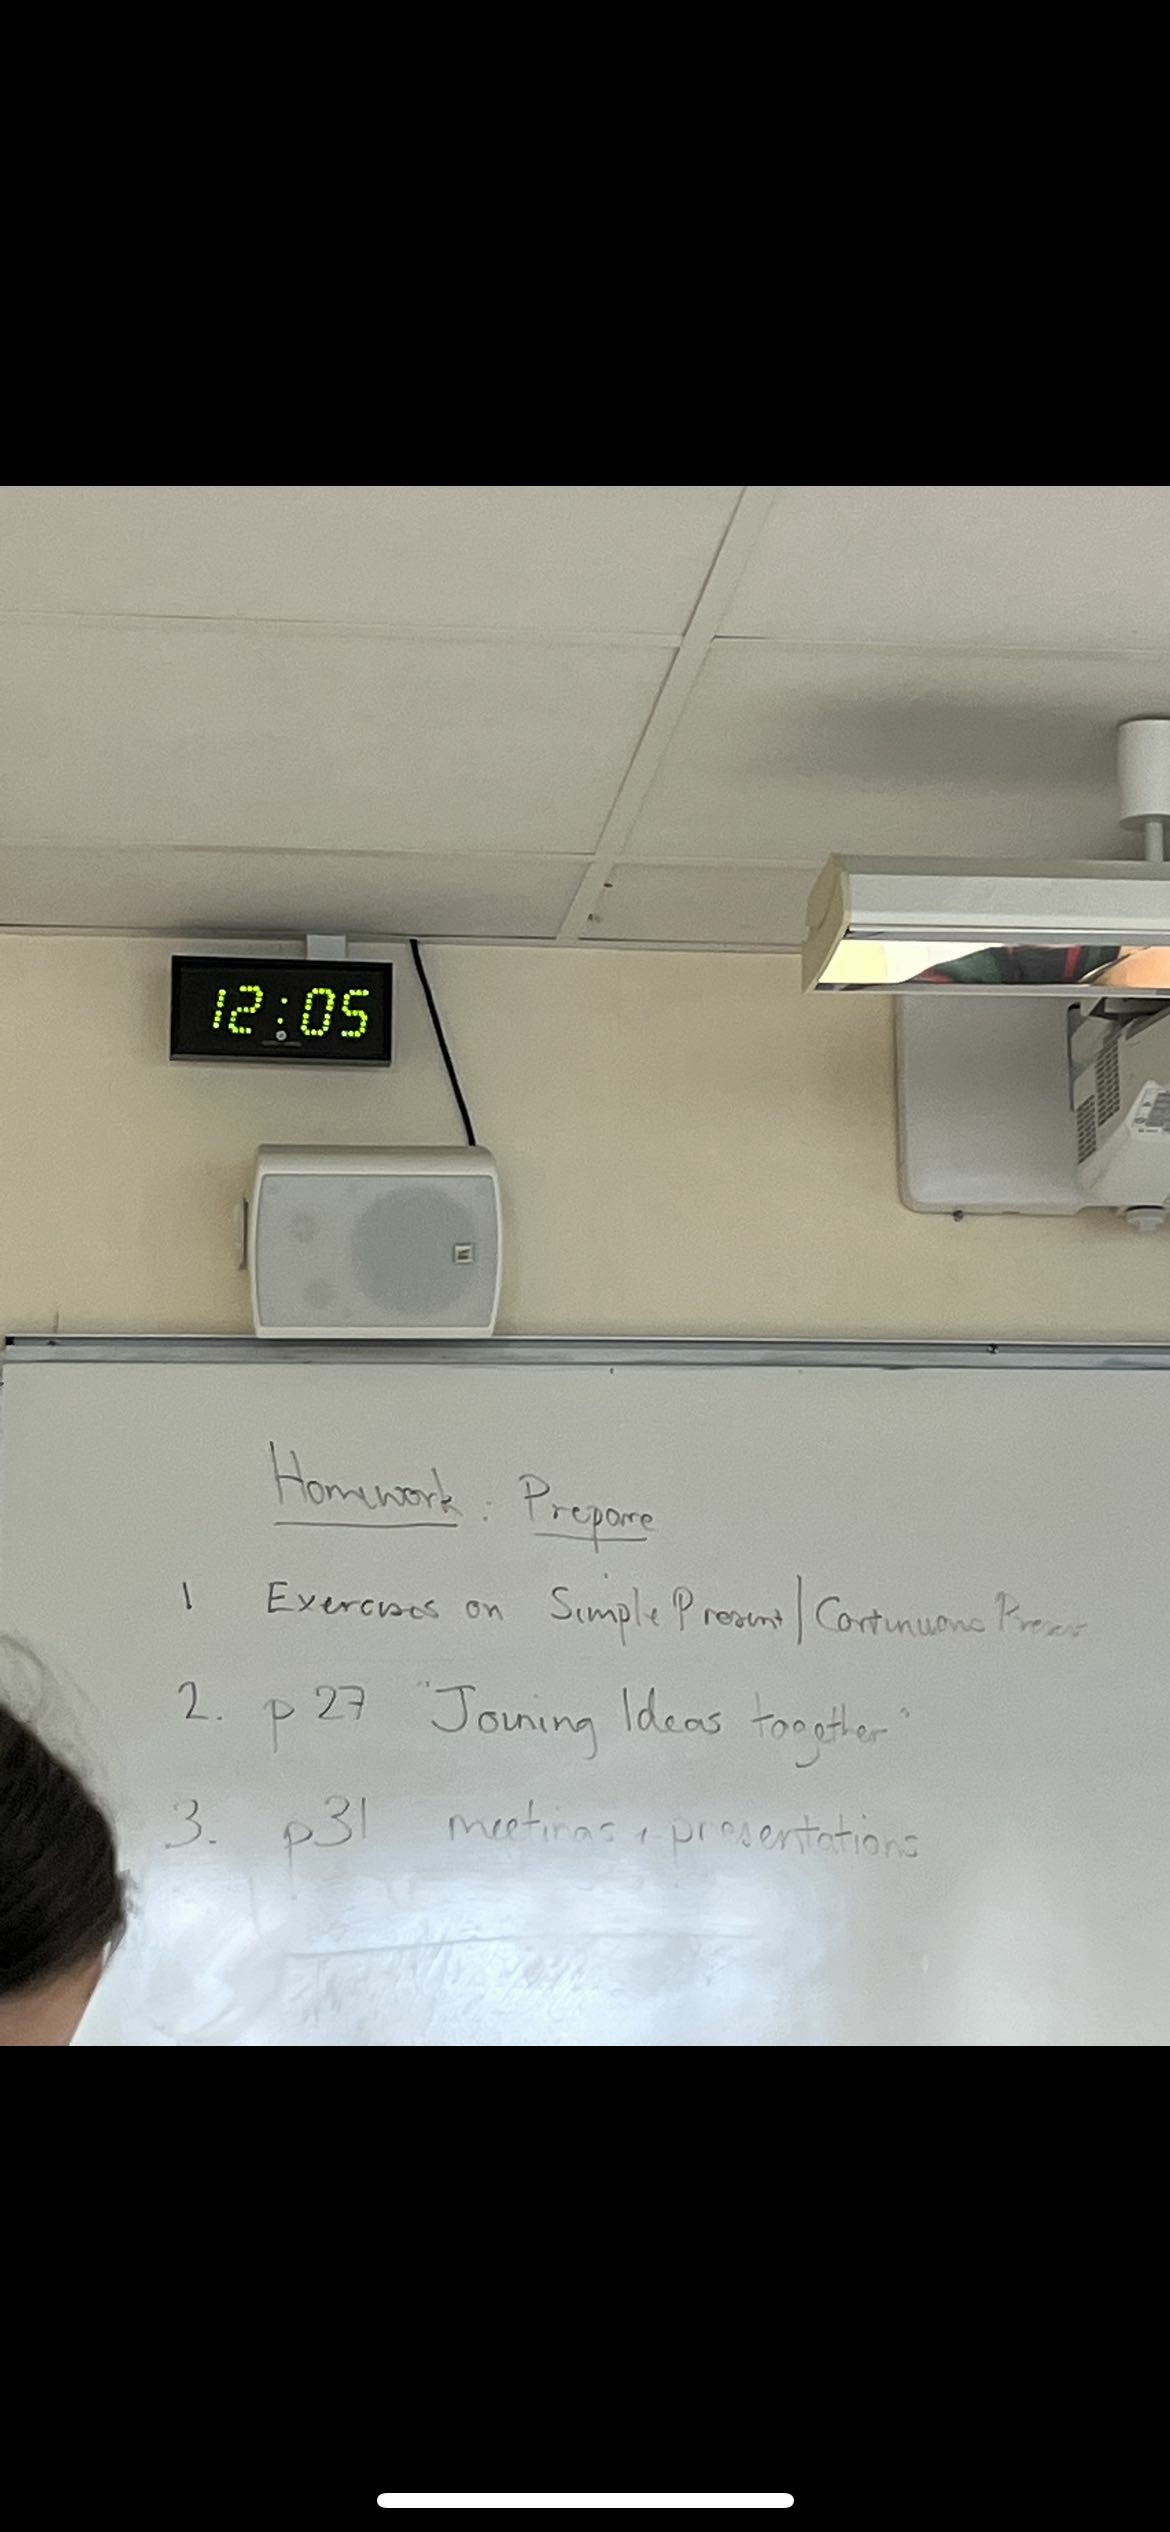 12:05
Homework : Prepare
1 Exercises on Simple Present / Continuous Present
2. p 27 "Joining Ideas together"
3. p31 meetings + presentations